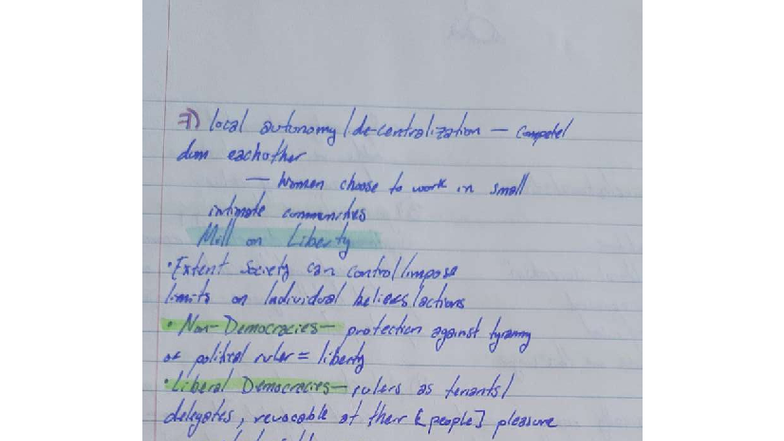 7) local autonomy/de-centralization — compete/
dum eachother
— Women choose to work in small
intimate communities
Mill on Liberty
• Extent Society can control/impose
limits on Individual believes/actions
• Non-Democracies — protection against tyranny
of politial ruler = liberty
• Liberal Democracies — rulers as tenants/
delegates, revocable at their [people] pleasure